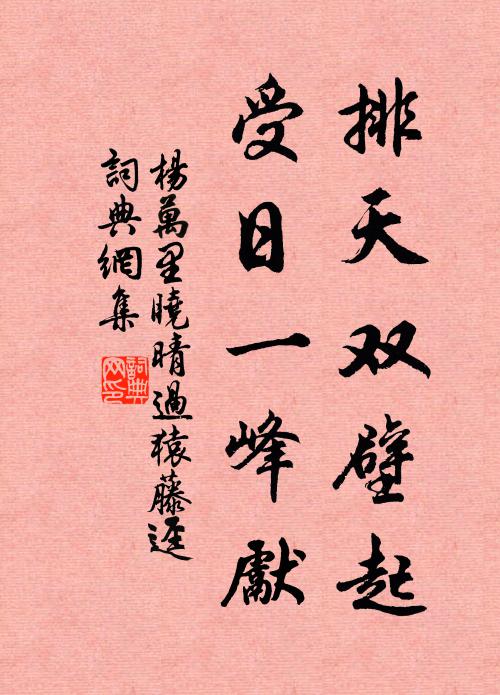 排天双壁起
受日一峰獻
楊萬里曉晴過猿藤逕
詞典網集
詞典网印